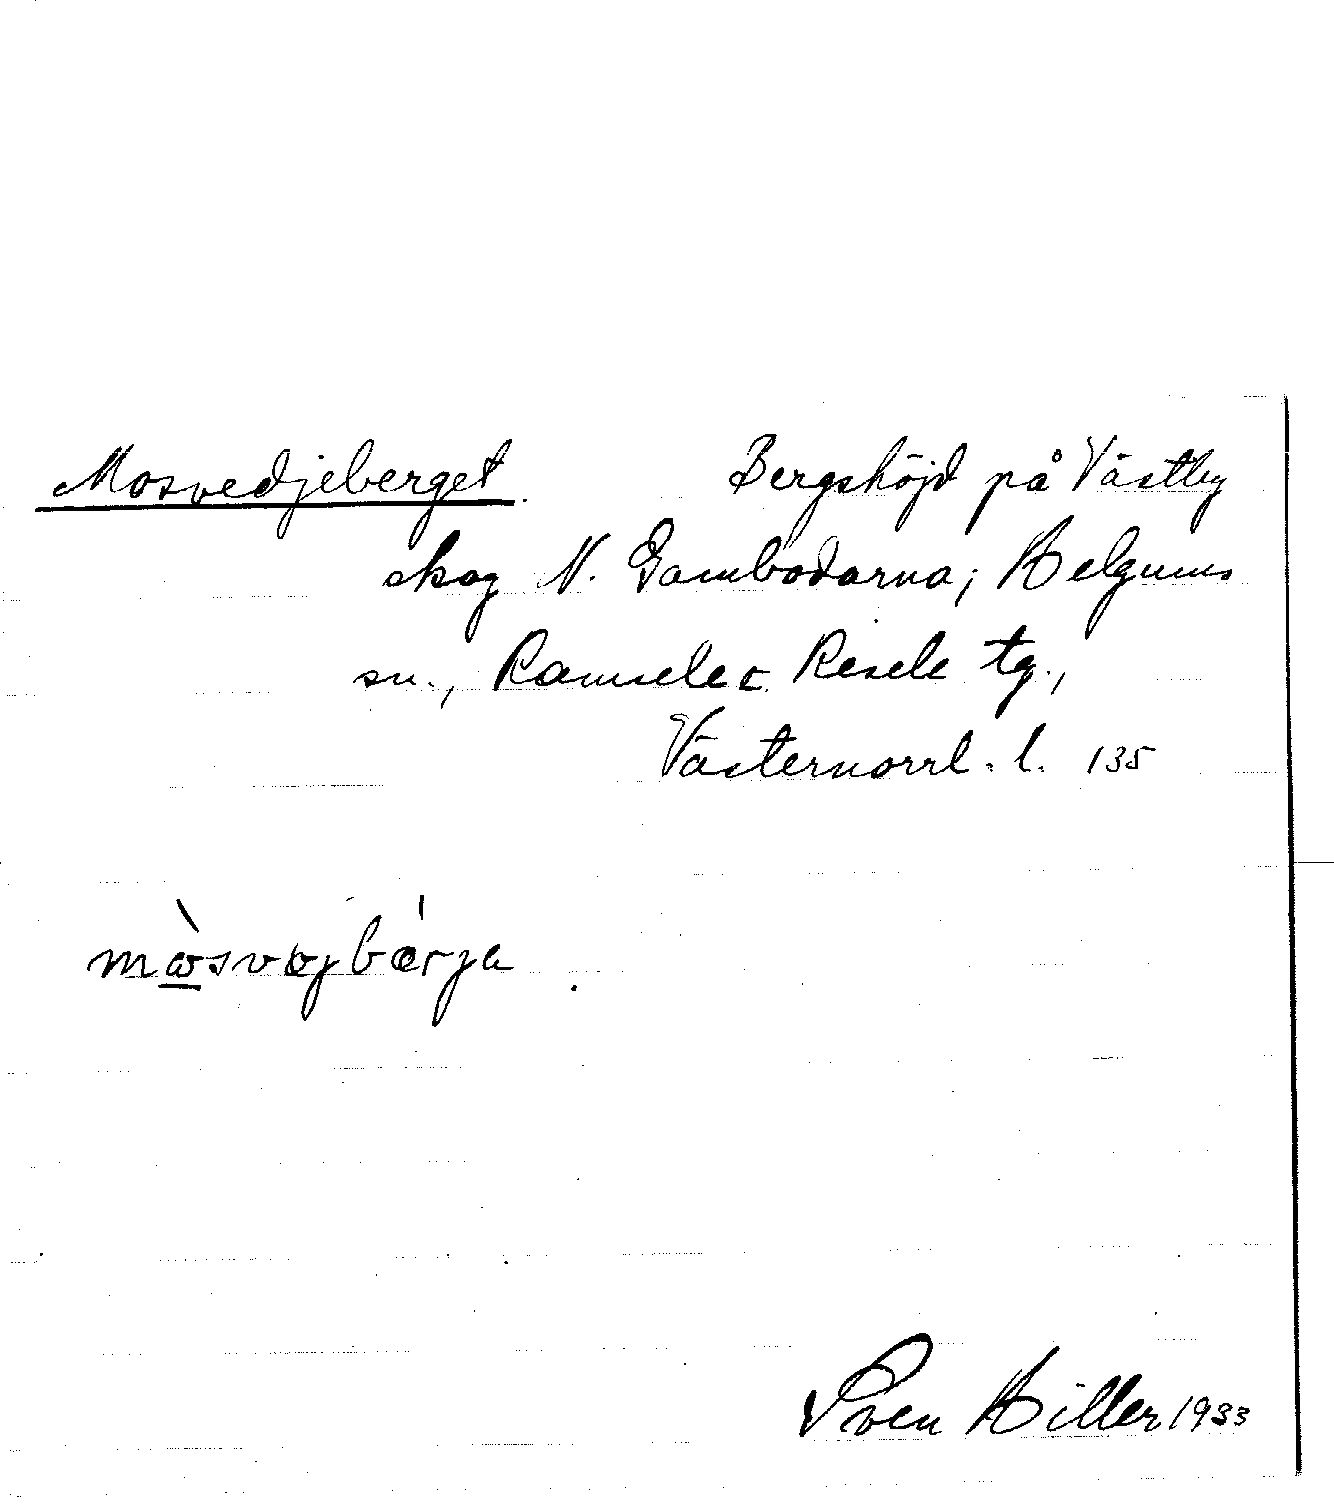 Mosvedjeberget. Bergshöjd på Västby
skog N. Gambodarna; Helgums
sn., Ramsele o Resele tg.,
Västernorrl. l. 135
Sven Hiller 1933